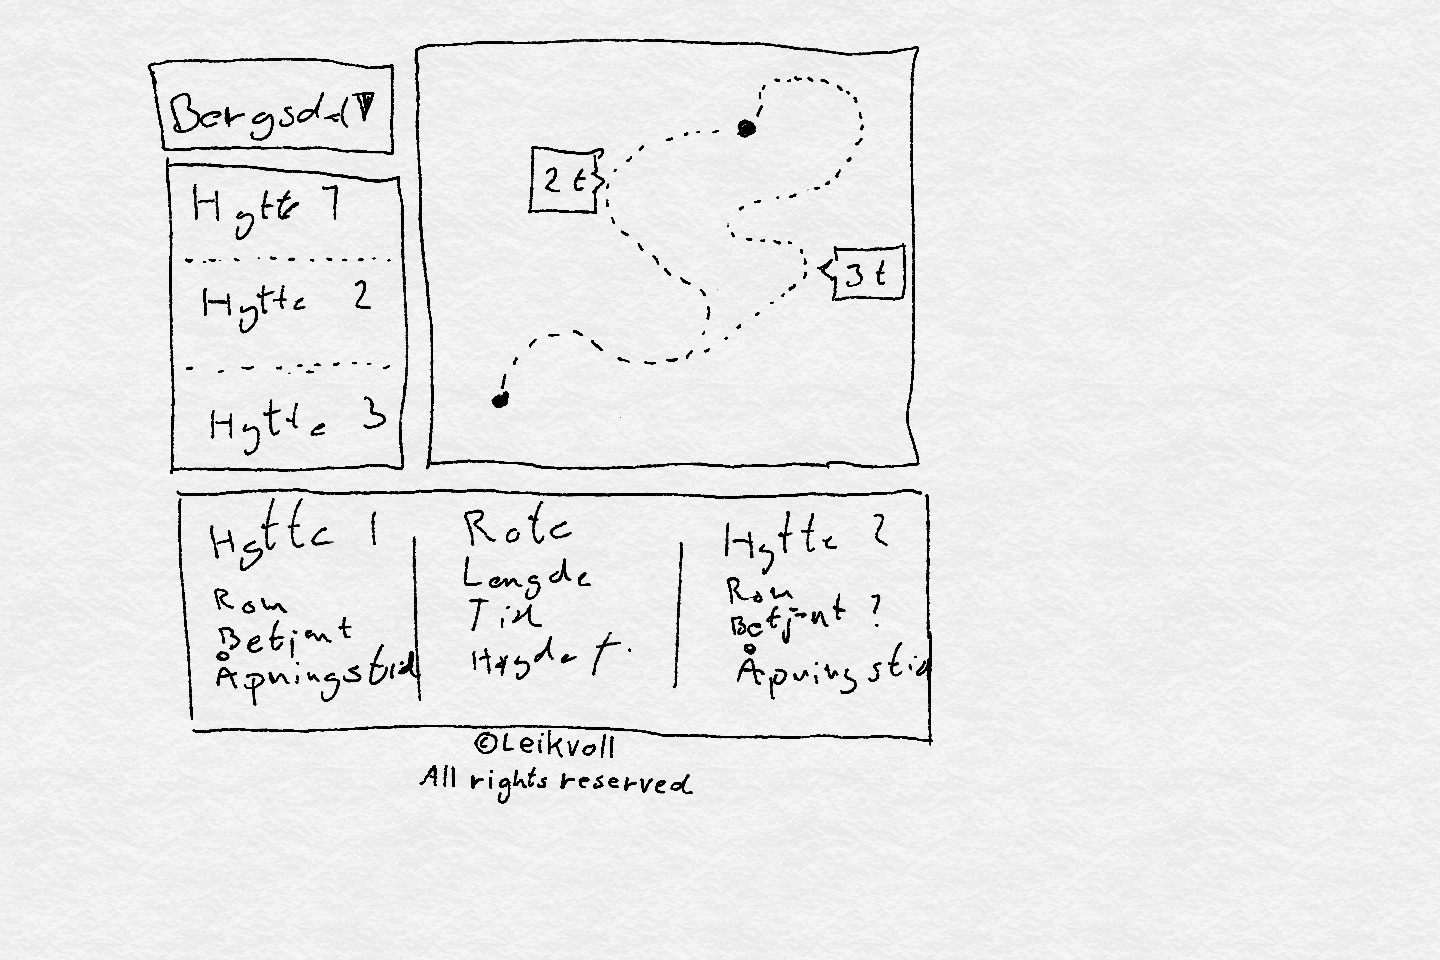 Bergsdal
Hytte 1
Hytte 2
Hytte 3
2 t
3 t
Hytte 1
Rom
Betjent
Åpningstid
Rote
Lengde
Tid
Høyde f.
Hytte 2
Rom
Betjent ?
Åpningstid
©Leikvoll
All rights reserved